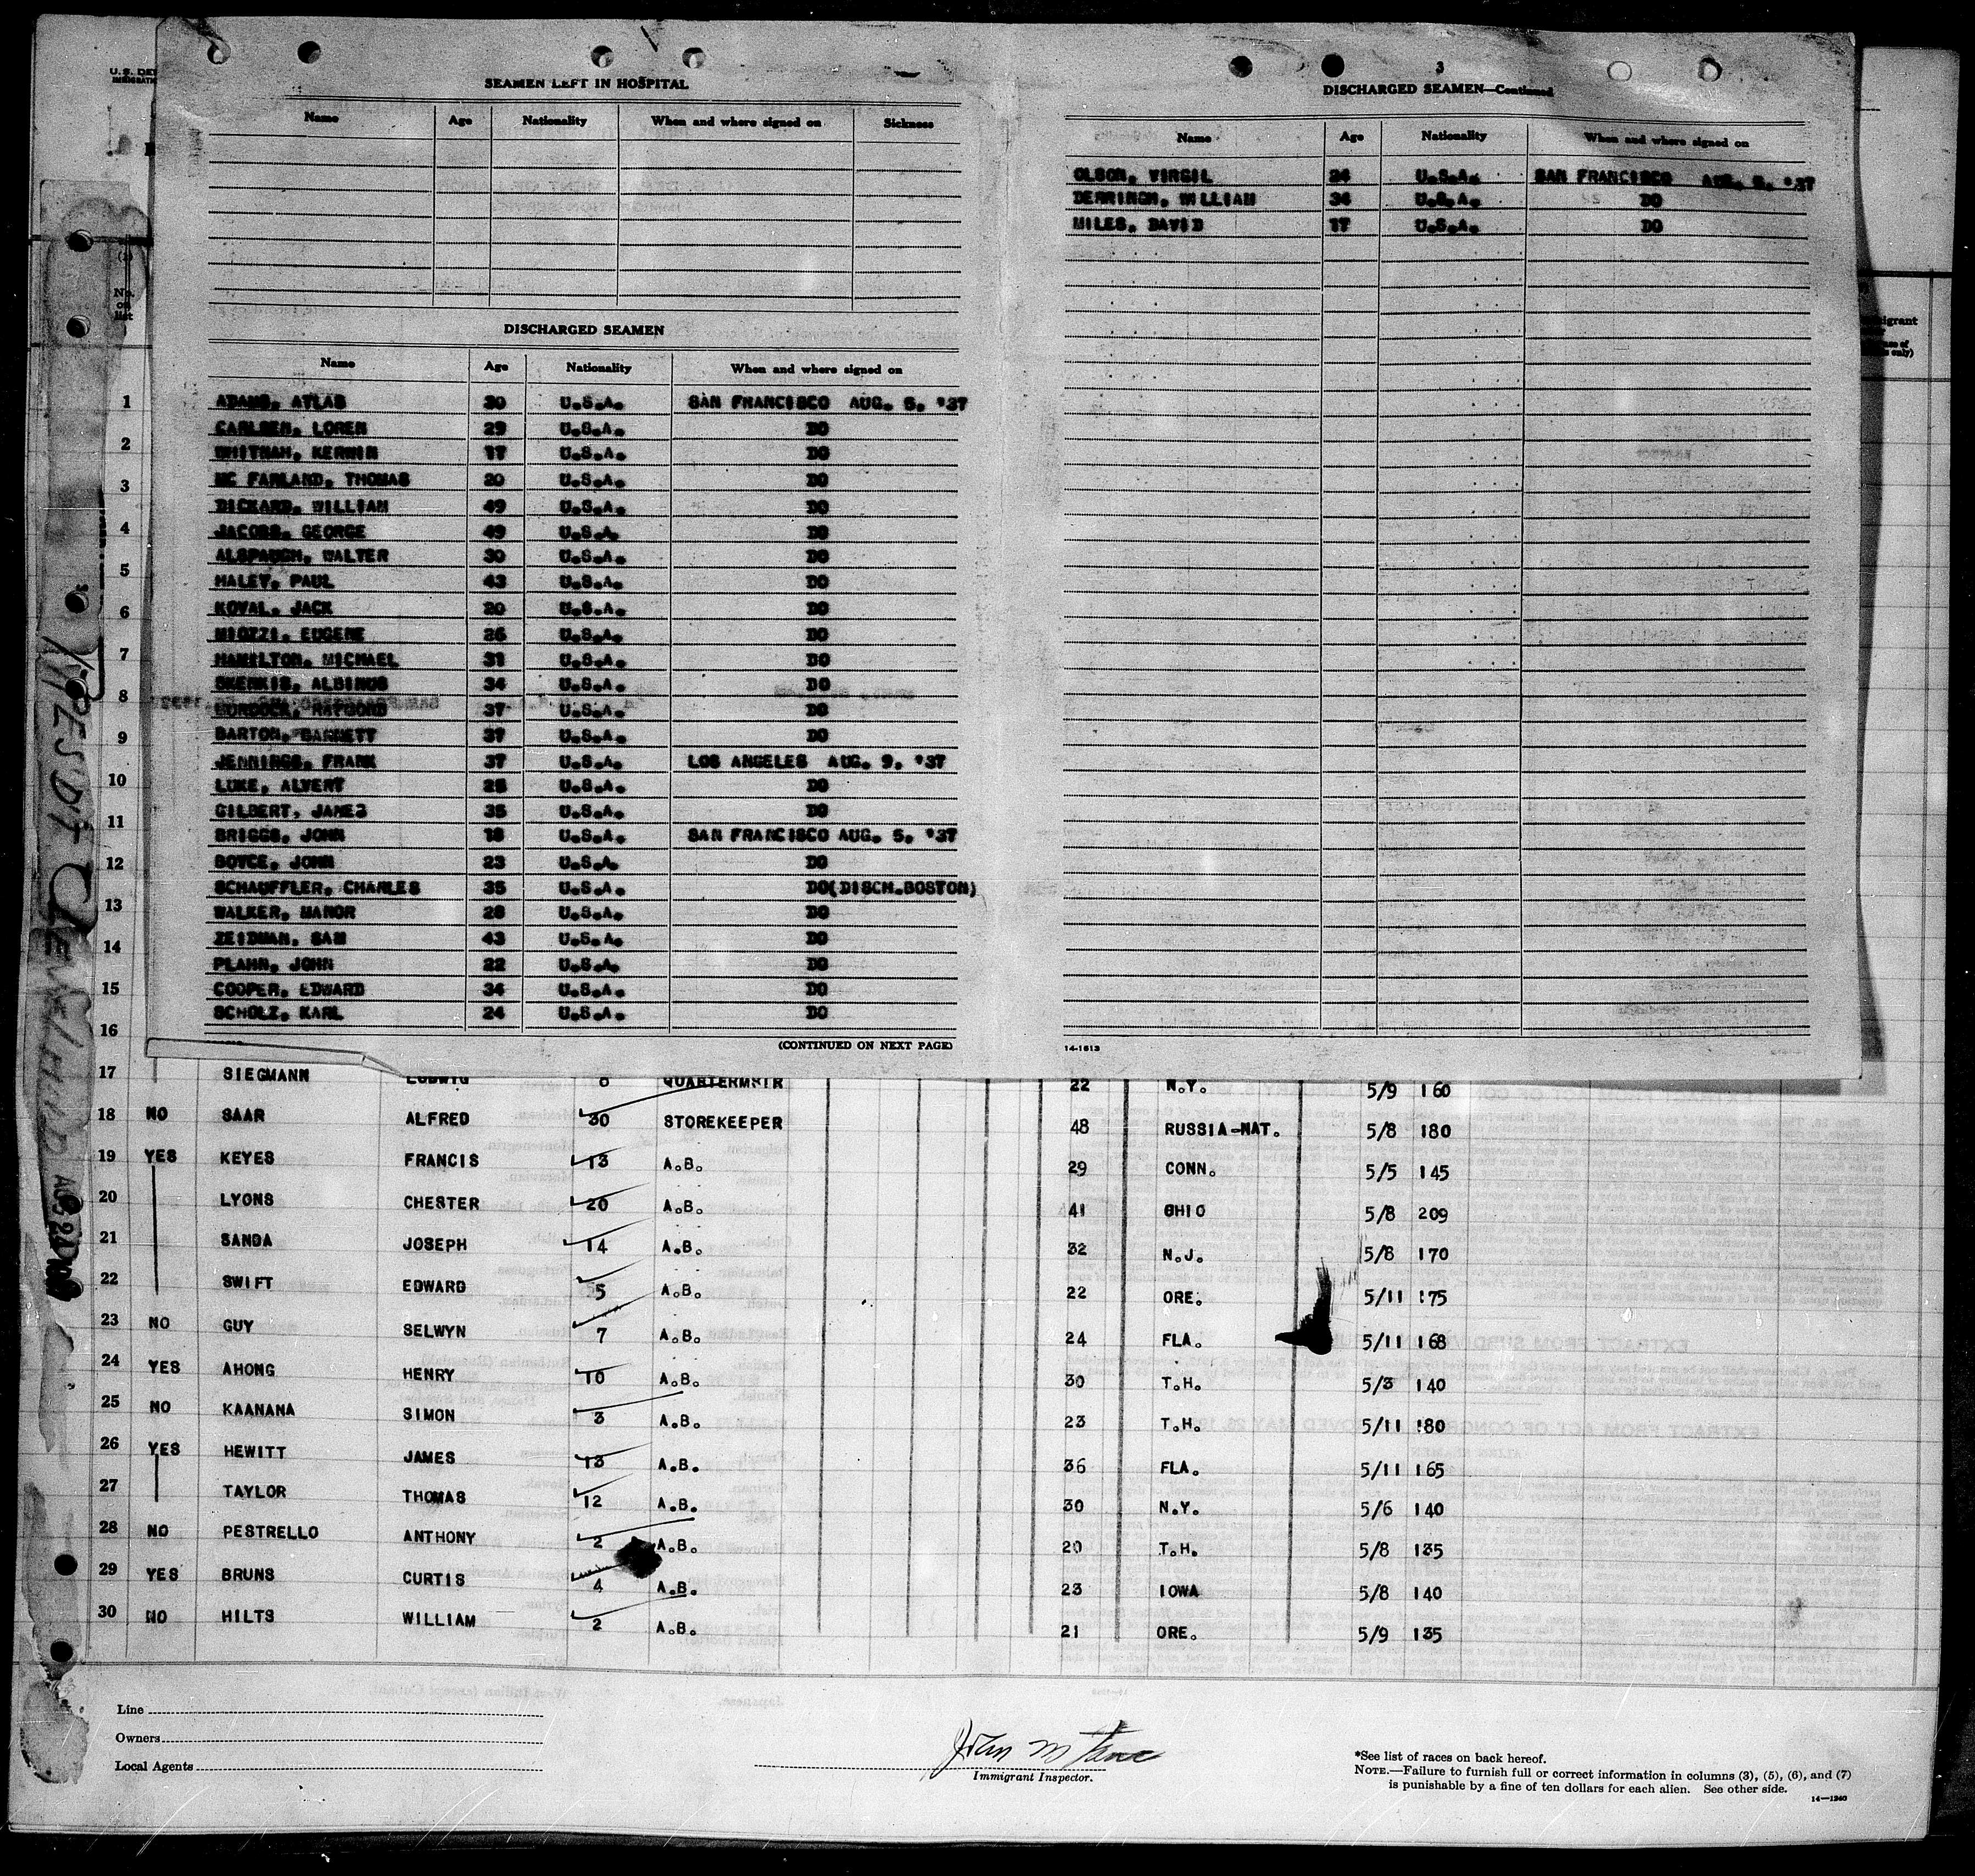 U.S. DE
SEAMEN LEFT IN HOSPITAL
Name Age Nationality When and where signed on Sickness
DISCHARGED SEAMEN
Name Age Nationality When and where signed on
ADAMS, ATLAS 30 U.S.A. SAN FRANCISCO AUG. 5, '37
CARLSEN, LOREN 29 U.S.A. DO
WHITMAN, KERWIN 17 U.S.A. DO
MC FARLAND, THOMAS 20 U.S.A. DO
DICKARD, WILLIAM 49 U.S.A. DO
JACOBS, GEORGE 49 U.S.A. DO
ALSPAUGH, WALTER 30 U.S.A. DO
HALEY, PAUL 43 U.S.A. DO
KOVAL, JACK 20 U.S.A. DO
MIOZZI, EUGENE 26 U.S.A. DO
HAMILTON, MICHAEL 31 U.S.A. DO
SKERKIS, ALBINOS 34 U.S.A. DO
MURDOCK, RAYMOND 37 U.S.A. DO
BARTON, BARNETT 37 U.S.A. DO
JENNINGS, FRANK 37 U.S.A. LOS ANGELES AUG. 9, '37
LUKE, ALVERT 25 U.S.A. DO
GILBERT, JAMES 35 U.S.A. DO
BRIGGS, JOHN 18 U.S.A. SAN FRANCISCO AUG. 5, '37
BOYCE, JOHN 23 U.S.A. DO
SCHAUFFLER, CHARLES 35 U.S.A. DO(DISCH.BOSTON)
WALKER, MANOR 28 U.S.A. DO
ZEIDMAN, SAM 43 U.S.A. DO
PLAHN, JOHN 22 U.S.A. DO
COOPER, EDWARD 34 U.S.A. DO
SCHOLZ, KARL 24 U.S.A. DO
(CONTINUED ON NEXT PAGE)
3
DISCHARGED SEAMEN—Continued
Name Age Nationality When and where signed on
OLSON, VIRGIL 24 U.S.A. SAN FRANCISCO AUG. 5, '37
DERRINGH, WILLIAM 34 U.S.A. DO
MILES, DAVID 17 U.S.A. DO
14-1613
No. on list
1
2
3
4
5
6
7
8
9
10
11
12
13
14
15
16
17 SIEGMANN LUDWIG 6 QUARTERMSTR 22 N.Y. 5/9 160
18 NO SAAR ALFRED 30 STOREKEEPER 48 RUSSIA-NAT. 5/8 180
19 YES KEYES FRANCIS 13 A.B. 29 CONN. 5/5 145
20 LYONS CHESTER 20 A.B. 41 OHIO 5/8 209
21 SANDA JOSEPH 14 A.B. 32 N.J. 5/8 170
22 SWIFT EDWARD 5 A.B. 22 ORE. 5/11 175
23 NO GUY SELWYN 7 A.B. 24 FLA. 5/11 168
24 YES AHONG HENRY 10 A.B. 30 T.H. 5/3 140
25 NO KAANANA SIMON 3 A.B. 23 T.H. 5/11 180
26 YES HEWITT JAMES 13 A.B. 36 FLA. 5/11 165
27 TAYLOR THOMAS 12 A.B. 30 N.Y. 5/6 140
28 NO PESTRELLO ANTHONY 2 A.B. 20 T.H. 5/8 135
29 YES BRUNS CURTIS 4 A.B. 23 IOWA 5/8 140
30 NO HILTS WILLIAM 2 A.B. 21 ORE. 5/9 135
Line
Owners
Local Agents
Immigrant Inspector.
*See list of races on back hereof.
NOTE.—Failure to furnish full or correct information in columns (3), (5), (6), and (7)
is punishable by a fine of ten dollars for each alien. See other side.
14—1240